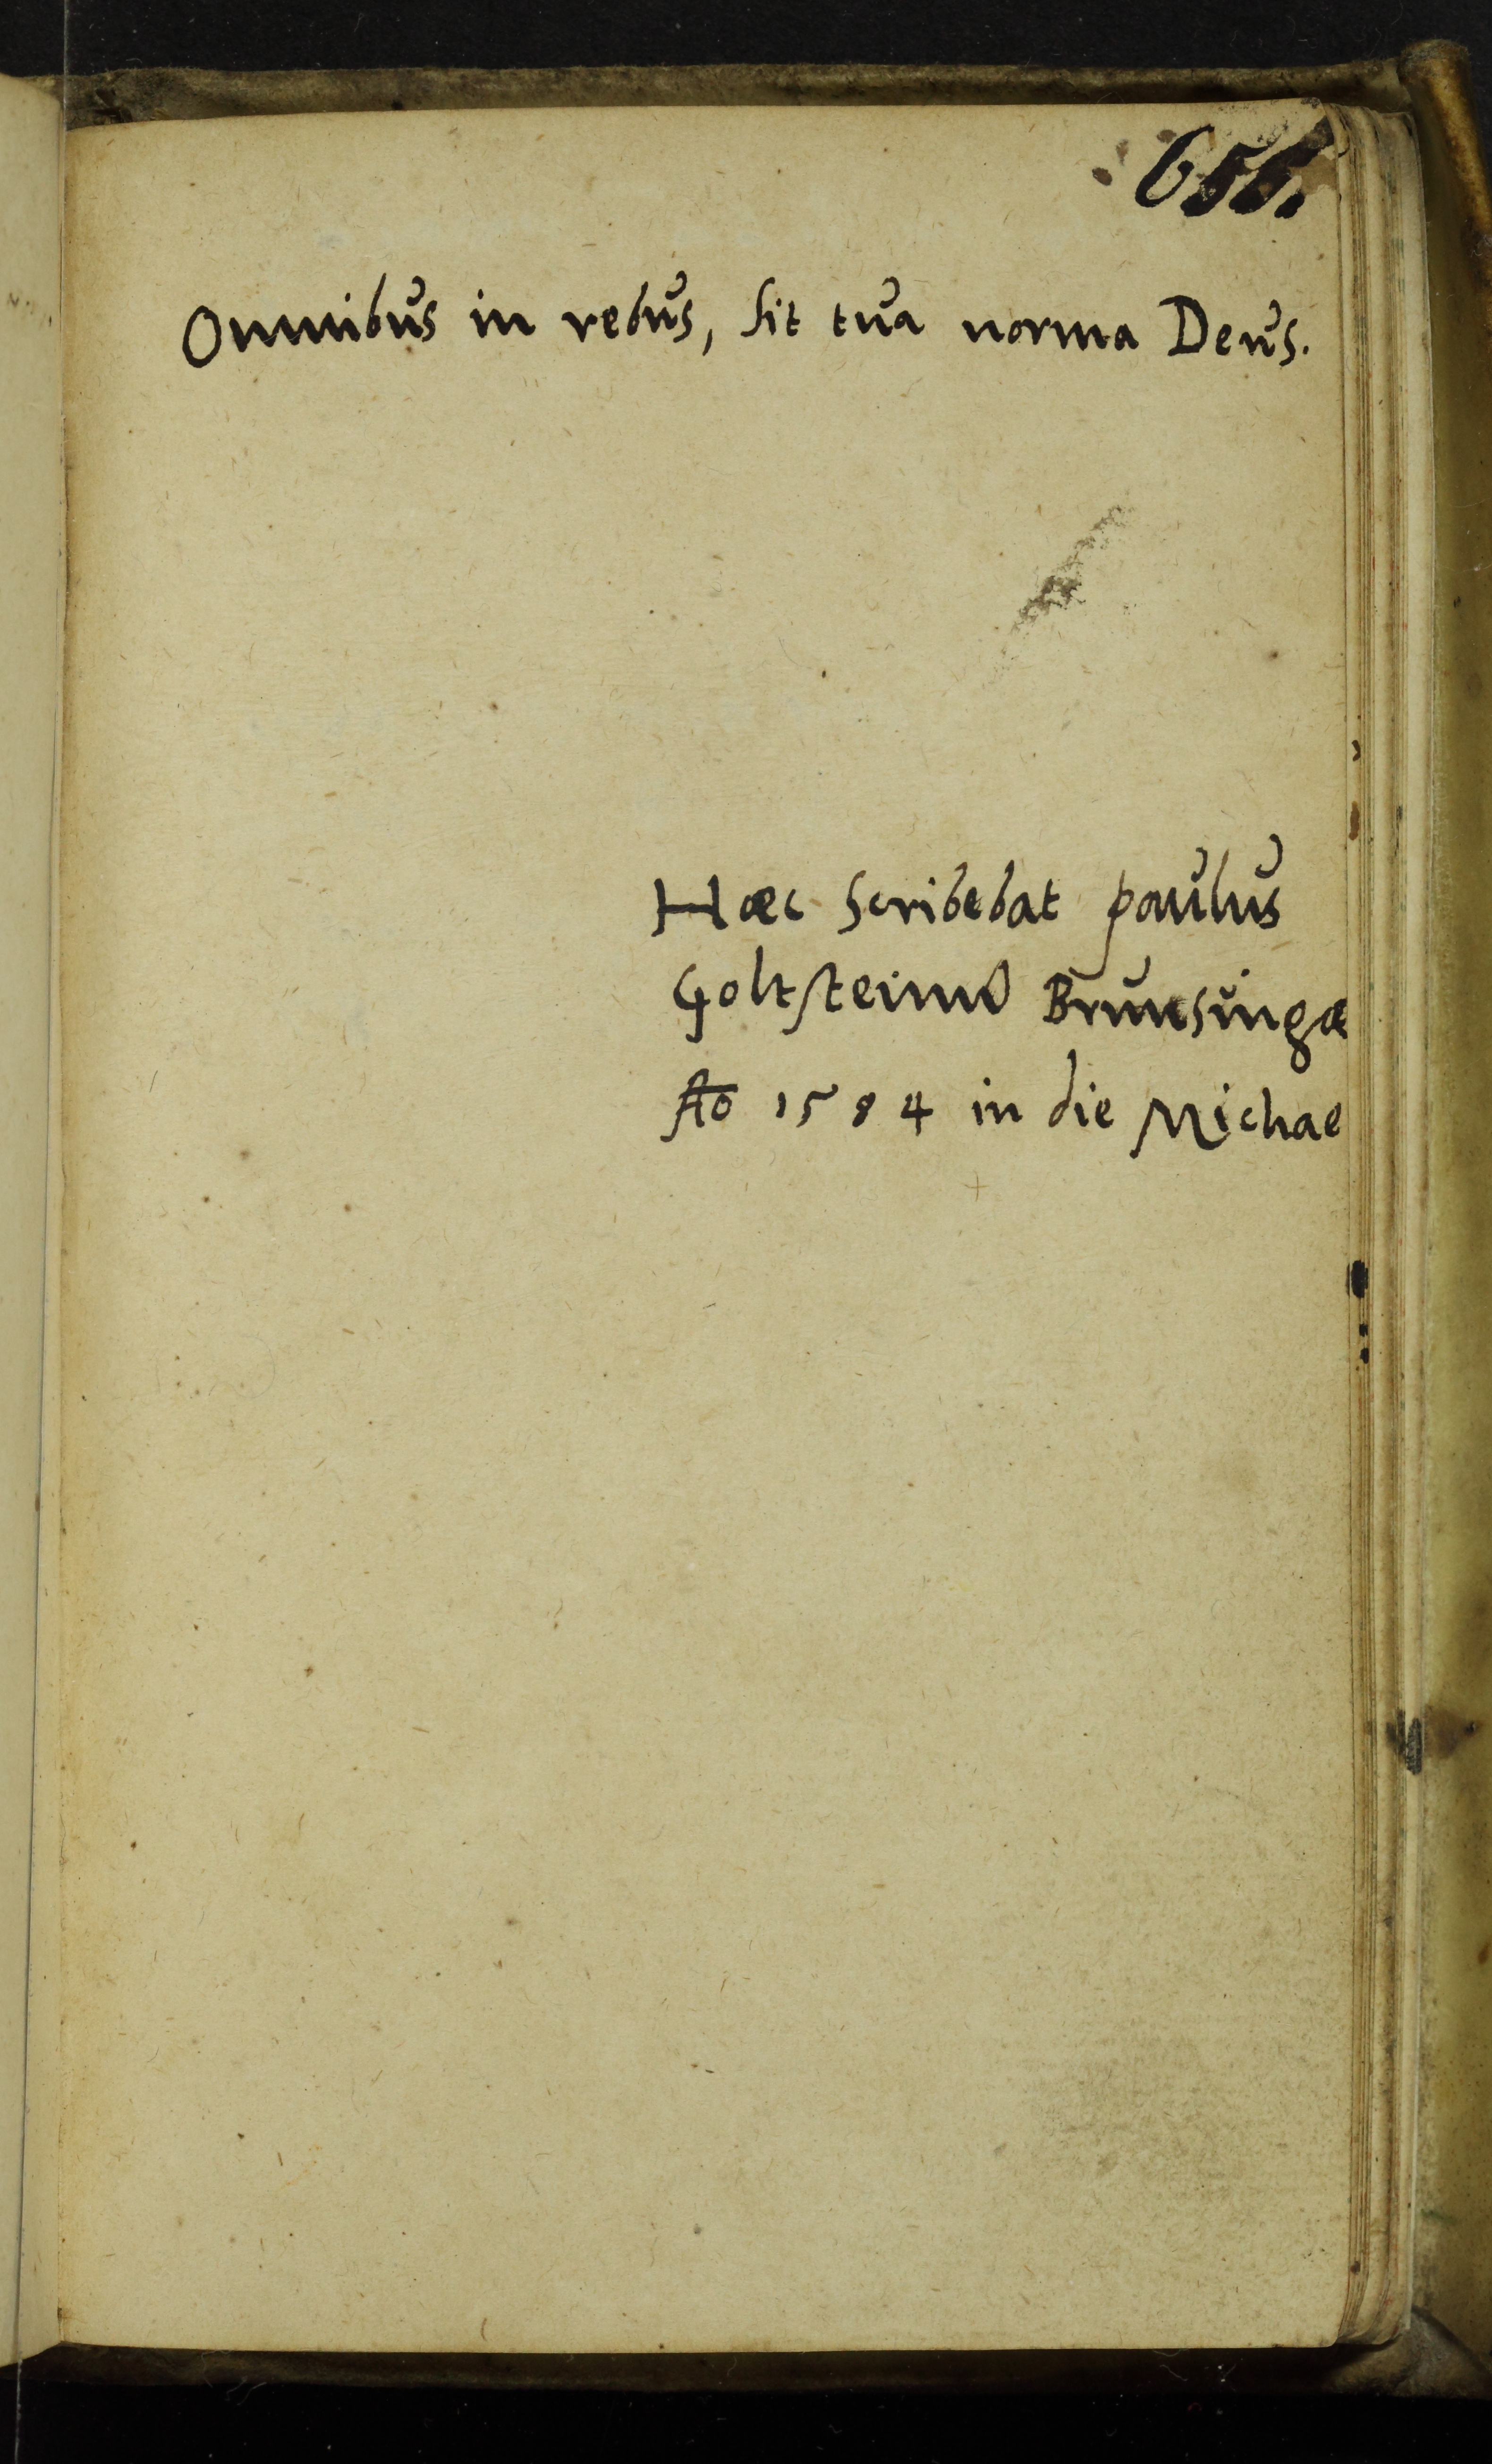 656.
Omnibus in rebus, sit tua norma Deus.
Haec scribebat paulus
Goltsteinius Brunsuingae
Ao 1584 in die Michae